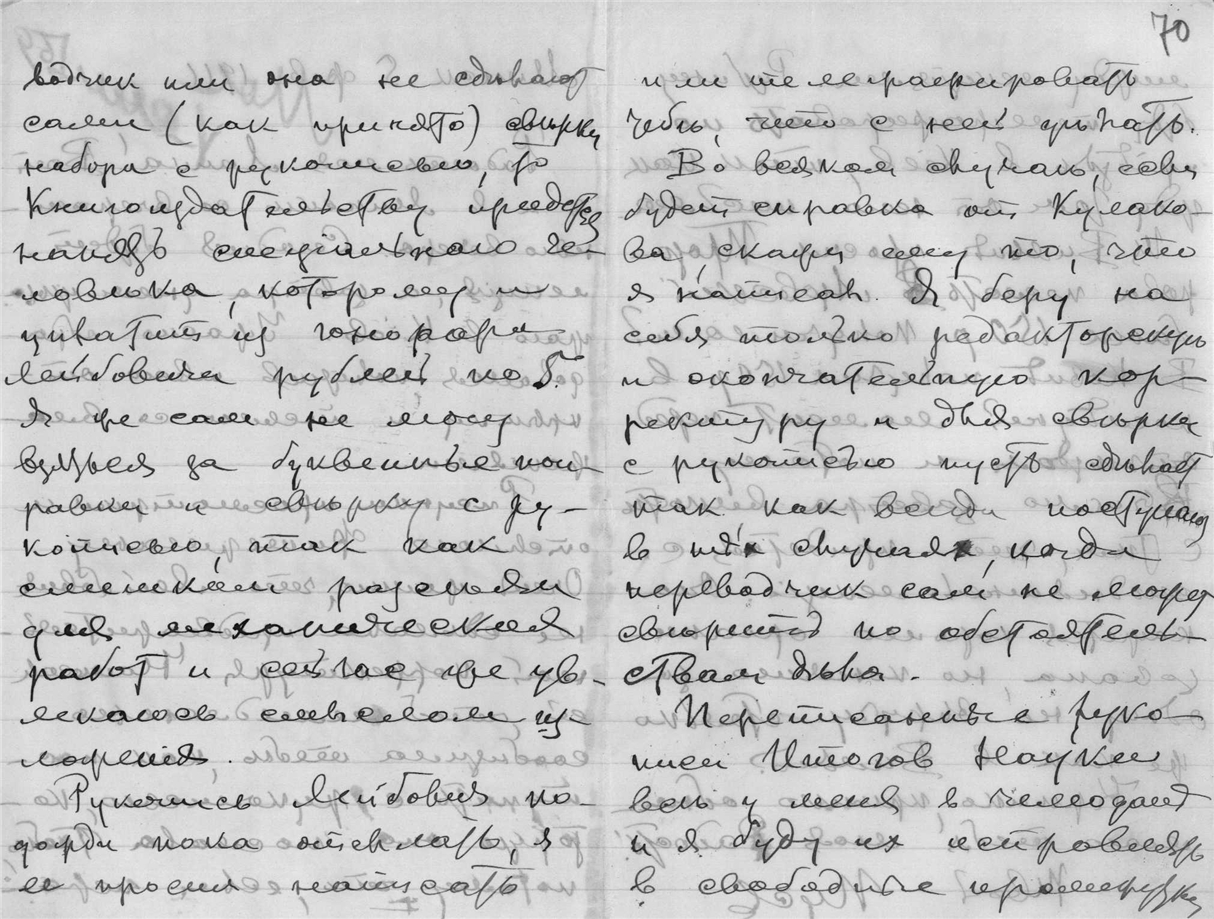 водчик или она не сдѣлают
сами (как принято) свѣрку
набора с рукописью, то
Книгоиздательству придется
нанять спеціальнаго че-
ловѣка, которому и
уплатит из гонорара
Лейбовича рублей по 5.
Я же сам не могу
взяться за буквенные поп-
равки и свѣрку с ру-
кописью, так как
слишком разсѣян
для механическая
работ и сейчас же ув-
лекаюсь смыслом из-
ложения.
Рукопись Лейбович по-
дожди пока отсылать, я
ее просил написать
70
или телеграфировать
тебѣ, что с ней дѣлать.
Во всяком случаѣ, если
будет справка от Кулако-
ва, скажи ему то, что
я написал. Я беру на
себя только редакторскую
и окончательную кор-
ректуру и для свѣрки
с рукописью пусть сдѣлает
так как всегда поступают
в тѣх случаях, когда
переводчик сам не может
свѣрить по обстоятель-
ствам дѣла.
Переписанные руко-
писи Итогов Науки
всѣ у меня в чемоданѣ
и я буду их исправлять
в свободные промежутки